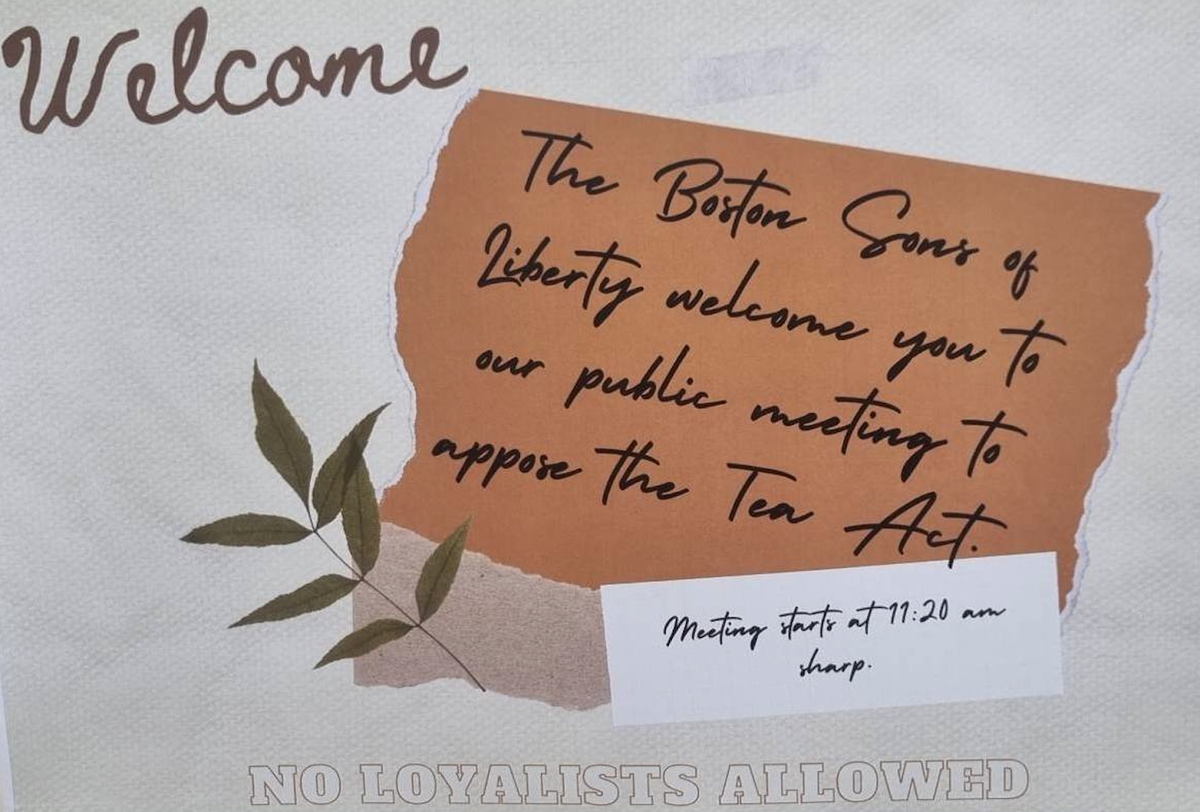 Welcome
The Boston Sons of
Liberty welcome you to
our public meeting to
appose the Tea Act.
Meeting starts at 11:20 am
sharp.
NO LOYALISTS ALLOWED